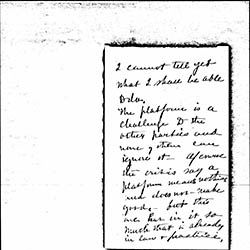 I cannot tell yet
what I shall be able
to do.
The platform is a
challenge to the
other parties and
none of them can
ignore it – of course
the critics say a
platform means nothing
and does not – make
good, – but this
one has in it so
much that is already
in law & practice,